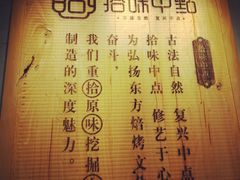 拾味中點
古法自然 复兴中点
拾味中点 修艺于心
为弘扬东方焙烤文
奋斗，
我们重拾原味挖掘
制造的深度魅力。